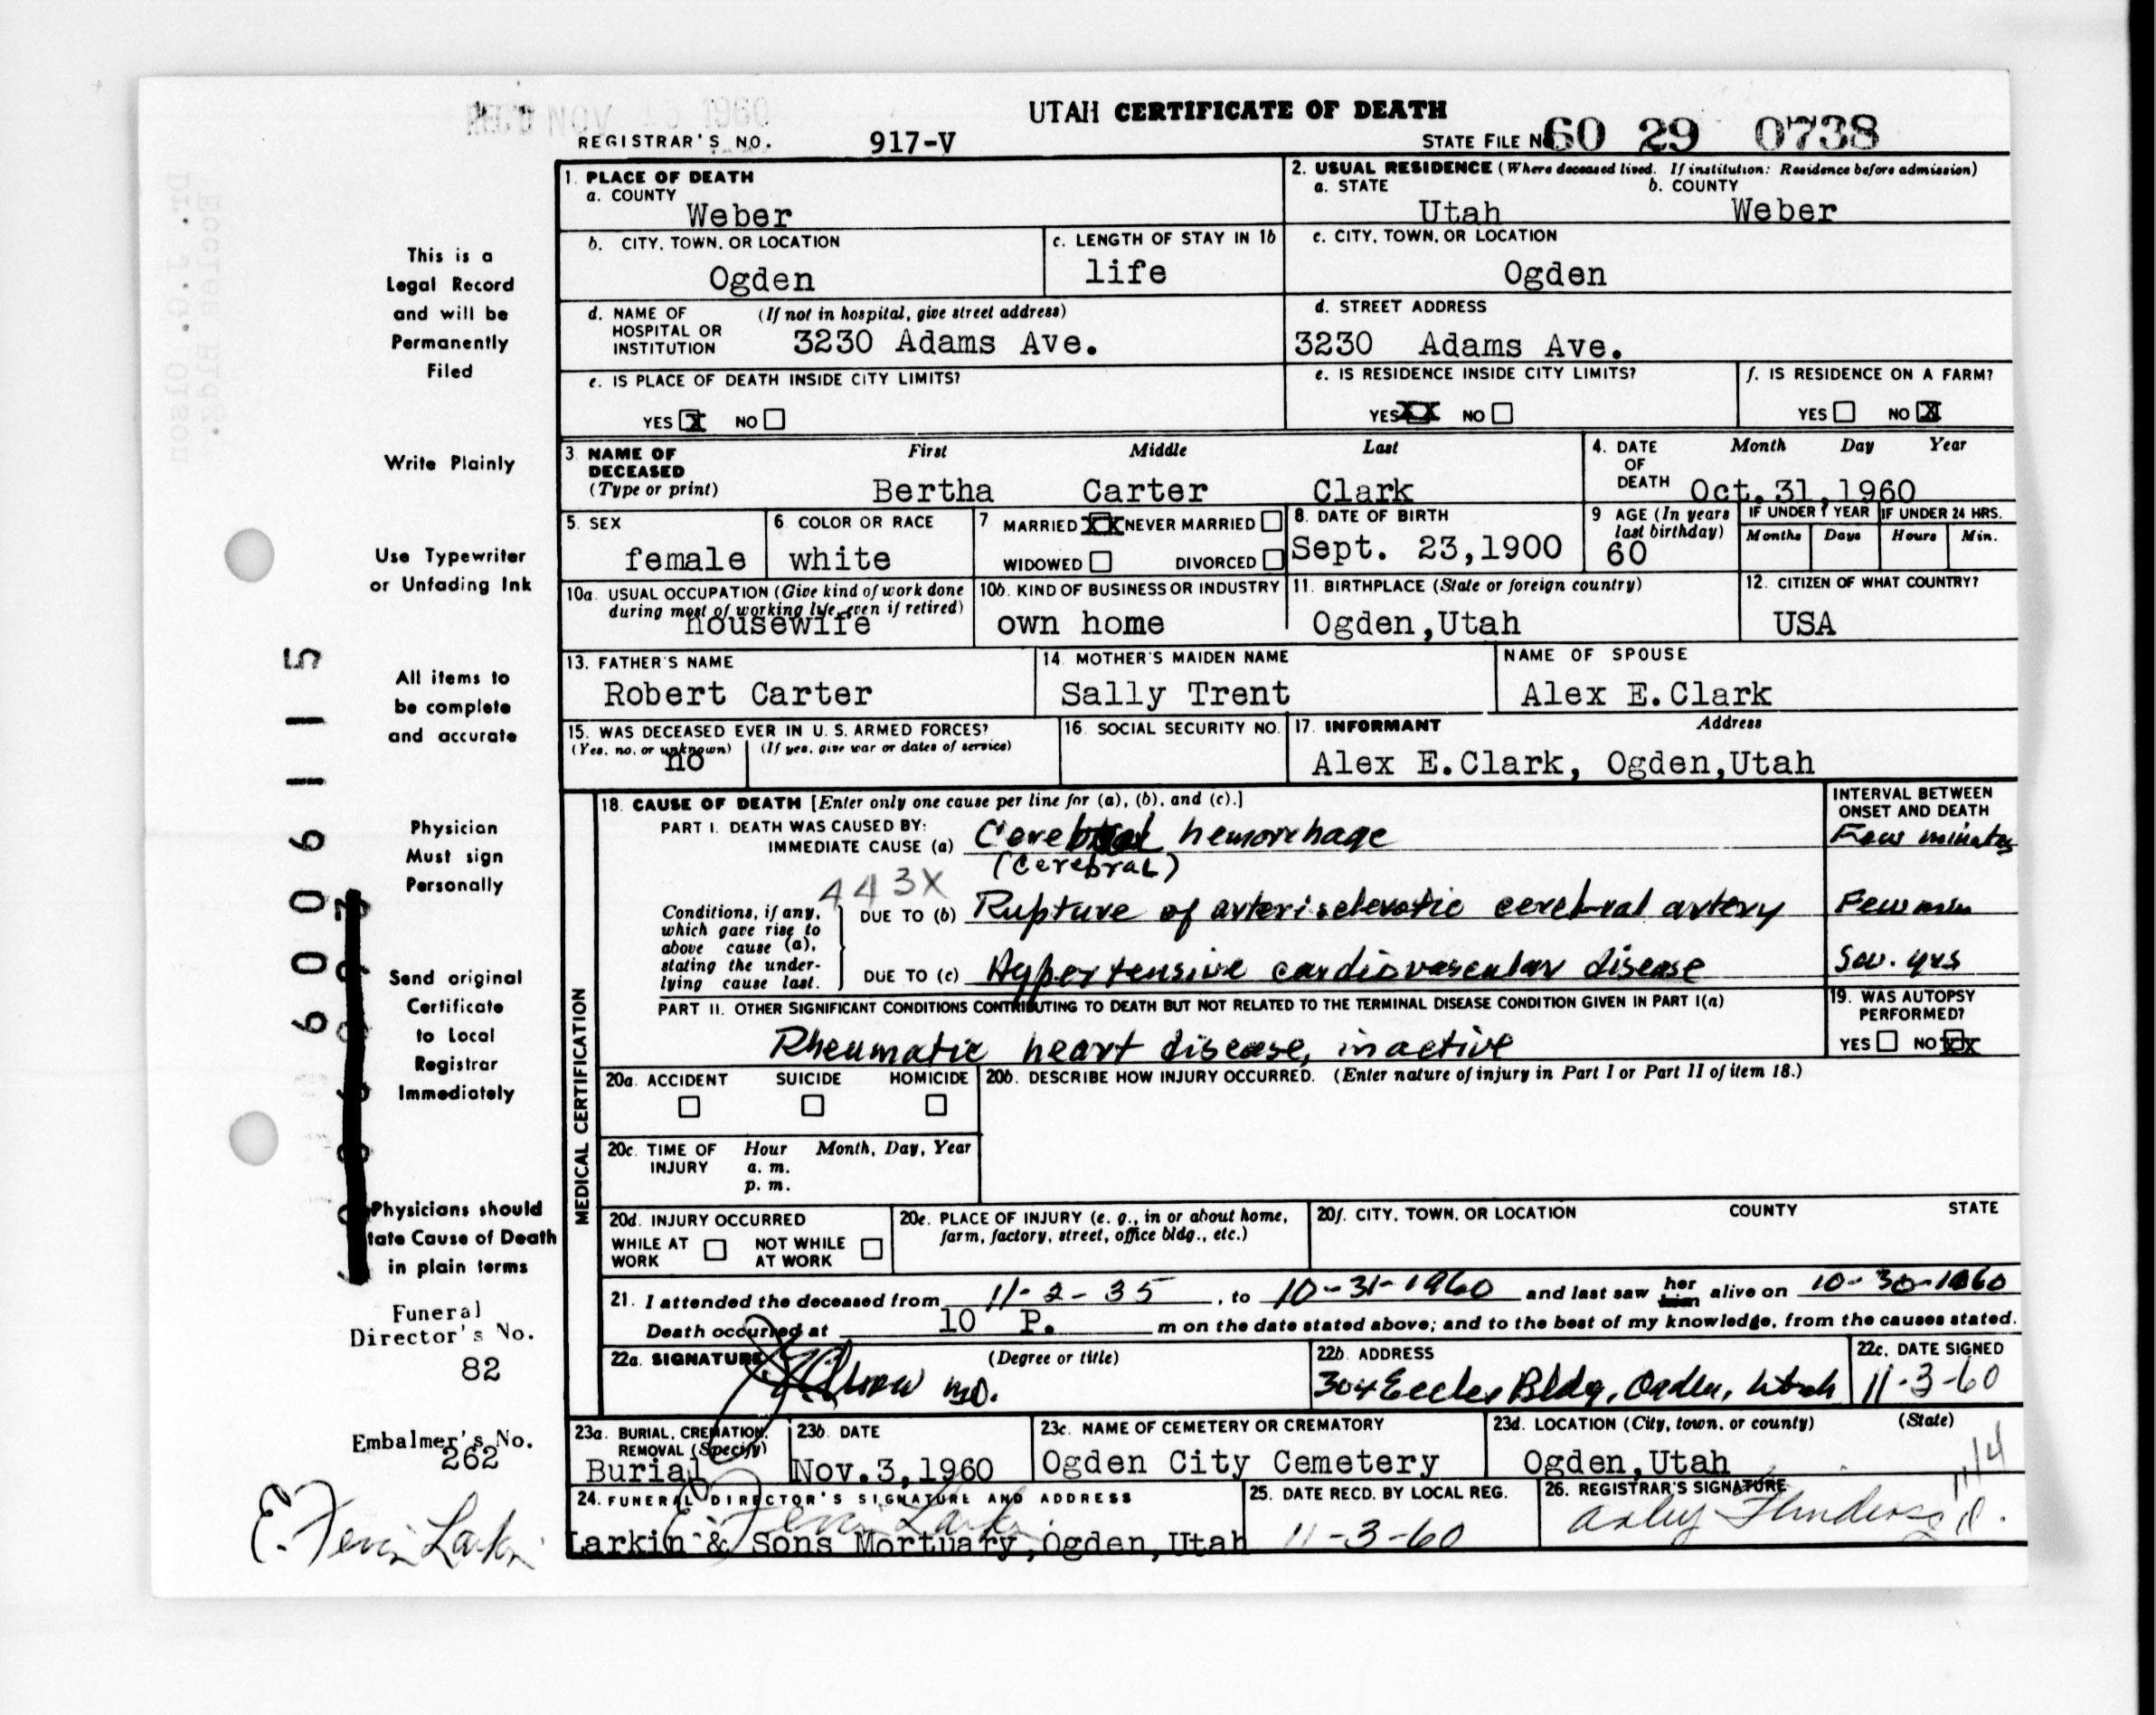 REC'D NOV 15 1960
UTAH CERTIFICATE OF DEATH
REGISTRAR'S NO. 917-V STATE FILE NO 60 29 0738
1. PLACE OF DEATH
a. COUNTY
Weber
2. USUAL RESIDENCE (Where deceased lived. If institution: Residence before admission)
a. STATE b. COUNTY
Utah Weber
b. CITY, TOWN, OR LOCATION
Ogden
c. LENGTH OF STAY IN 1b
life
c. CITY, TOWN, OR LOCATION
Ogden
d. NAME OF HOSPITAL OR INSTITUTION (If not in hospital, give street address)
3230 Adams Ave.
d. STREET ADDRESS
3230 Adams Ave.
e. IS PLACE OF DEATH INSIDE CITY LIMITS?
YES X NO
e. IS RESIDENCE INSIDE CITY LIMITS?
YES XX NO
f. IS RESIDENCE ON A FARM?
YES NO X
3. NAME OF DECEASED (Type or print)
First Middle Last
Bertha Carter Clark
4. DATE OF DEATH Month Day Year
Oct.31,1960
5. SEX
female
6. COLOR OR RACE
white
7 MARRIED XX NEVER MARRIED
WIDOWED DIVORCED
8. DATE OF BIRTH
Sept. 23,1900
9 AGE (In years last birthday)
60
IF UNDER 1 YEAR IF UNDER 24 HRS.
Months Days Hours Min.
10a. USUAL OCCUPATION (Give kind of work done during most of working life, even if retired)
housewife
10b. KIND OF BUSINESS OR INDUSTRY
own home
11. BIRTHPLACE (State or foreign country)
Ogden,Utah
12. CITIZEN OF WHAT COUNTRY?
USA
13. FATHER'S NAME
Robert Carter
14. MOTHER'S MAIDEN NAME
Sally Trent
NAME OF SPOUSE
Alex E.Clark
15. WAS DECEASED EVER IN U.S. ARMED FORCES?
(Yes, no, or unknown) (If yes, give war or dates of service)
no
16. SOCIAL SECURITY NO.
17. INFORMANT Address
Alex E.Clark, Ogden,Utah
MEDICAL CERTIFICATION
18. CAUSE OF DEATH [Enter only one cause per line for (a), (b), and (c).]
INTERVAL BETWEEN ONSET AND DEATH
PART I. DEATH WAS CAUSED BY:
IMMEDIATE CAUSE (a) Cerebral hemorrhage Few minutes
(Cerebral)
443X
Conditions, if any, which gave rise to above cause (a), stating the underlying cause last.
DUE TO (b) Rupture of arteriosclerotic cerebral artery Few min
DUE TO (c) Hypertensive cardiovascular disease Sev. yrs
PART II. OTHER SIGNIFICANT CONDITIONS CONTRIBUTING TO DEATH BUT NOT RELATED TO THE TERMINAL DISEASE CONDITION GIVEN IN PART I(a)
Rheumatic heart disease, inactive
19. WAS AUTOPSY PERFORMED?
YES NO XX
20a. ACCIDENT SUICIDE HOMICIDE
20b. DESCRIBE HOW INJURY OCCURRED. (Enter nature of injury in Part I or Part II of item 18.)
20c. TIME OF INJURY Hour Month, Day, Year
a. m.
p. m.
20d. INJURY OCCURRED
WHILE AT WORK NOT WHILE AT WORK
20e. PLACE OF INJURY (e. g., in or about home, farm, factory, street, office bldg., etc.)
20f. CITY, TOWN, OR LOCATION COUNTY STATE
21. I attended the deceased from 11-2-35, to 10-31-1960 and last saw her him alive on 10-30-1960
Death occurred at 10 P. m on the date stated above; and to the best of my knowledge, from the causes stated.
22a. SIGNATURE (Degree or title)
JGOlson MD.
22b. ADDRESS
304 Eccles Bldg, Ogden, Utah
22c. DATE SIGNED
11-3-60
23a. BURIAL, CREMATION, REMOVAL (Specify)
Burial
23b. DATE
Nov.3,1960
23c. NAME OF CEMETERY OR CREMATORY
Ogden City Cemetery
23d. LOCATION (City, town, or county) (State)
Ogden,Utah
24. FUNERAL DIRECTOR'S SIGNATURE AND ADDRESS
Larkin & Sons Mortuary,Ogden,Utah
25. DATE RECD. BY LOCAL REG.
11-3-60
26. REGISTRAR'S SIGNATURE
11/4
This is a
Legal Record
and will be
Permanently
Filed
Write Plainly
Use Typewriter
or Unfading Ink
All items to
be complete
and accurate
Physician
Must sign
Personally
Send original
Certificate
to Local
Registrar
Immediately
Physicians should
tate Cause of Death
in plain terms
Funeral
Director's No.
82
Embalmer's No.
262
E. Fevin Larkin
60061 15
Dr. J.G. Olson
Eccles Bldg.